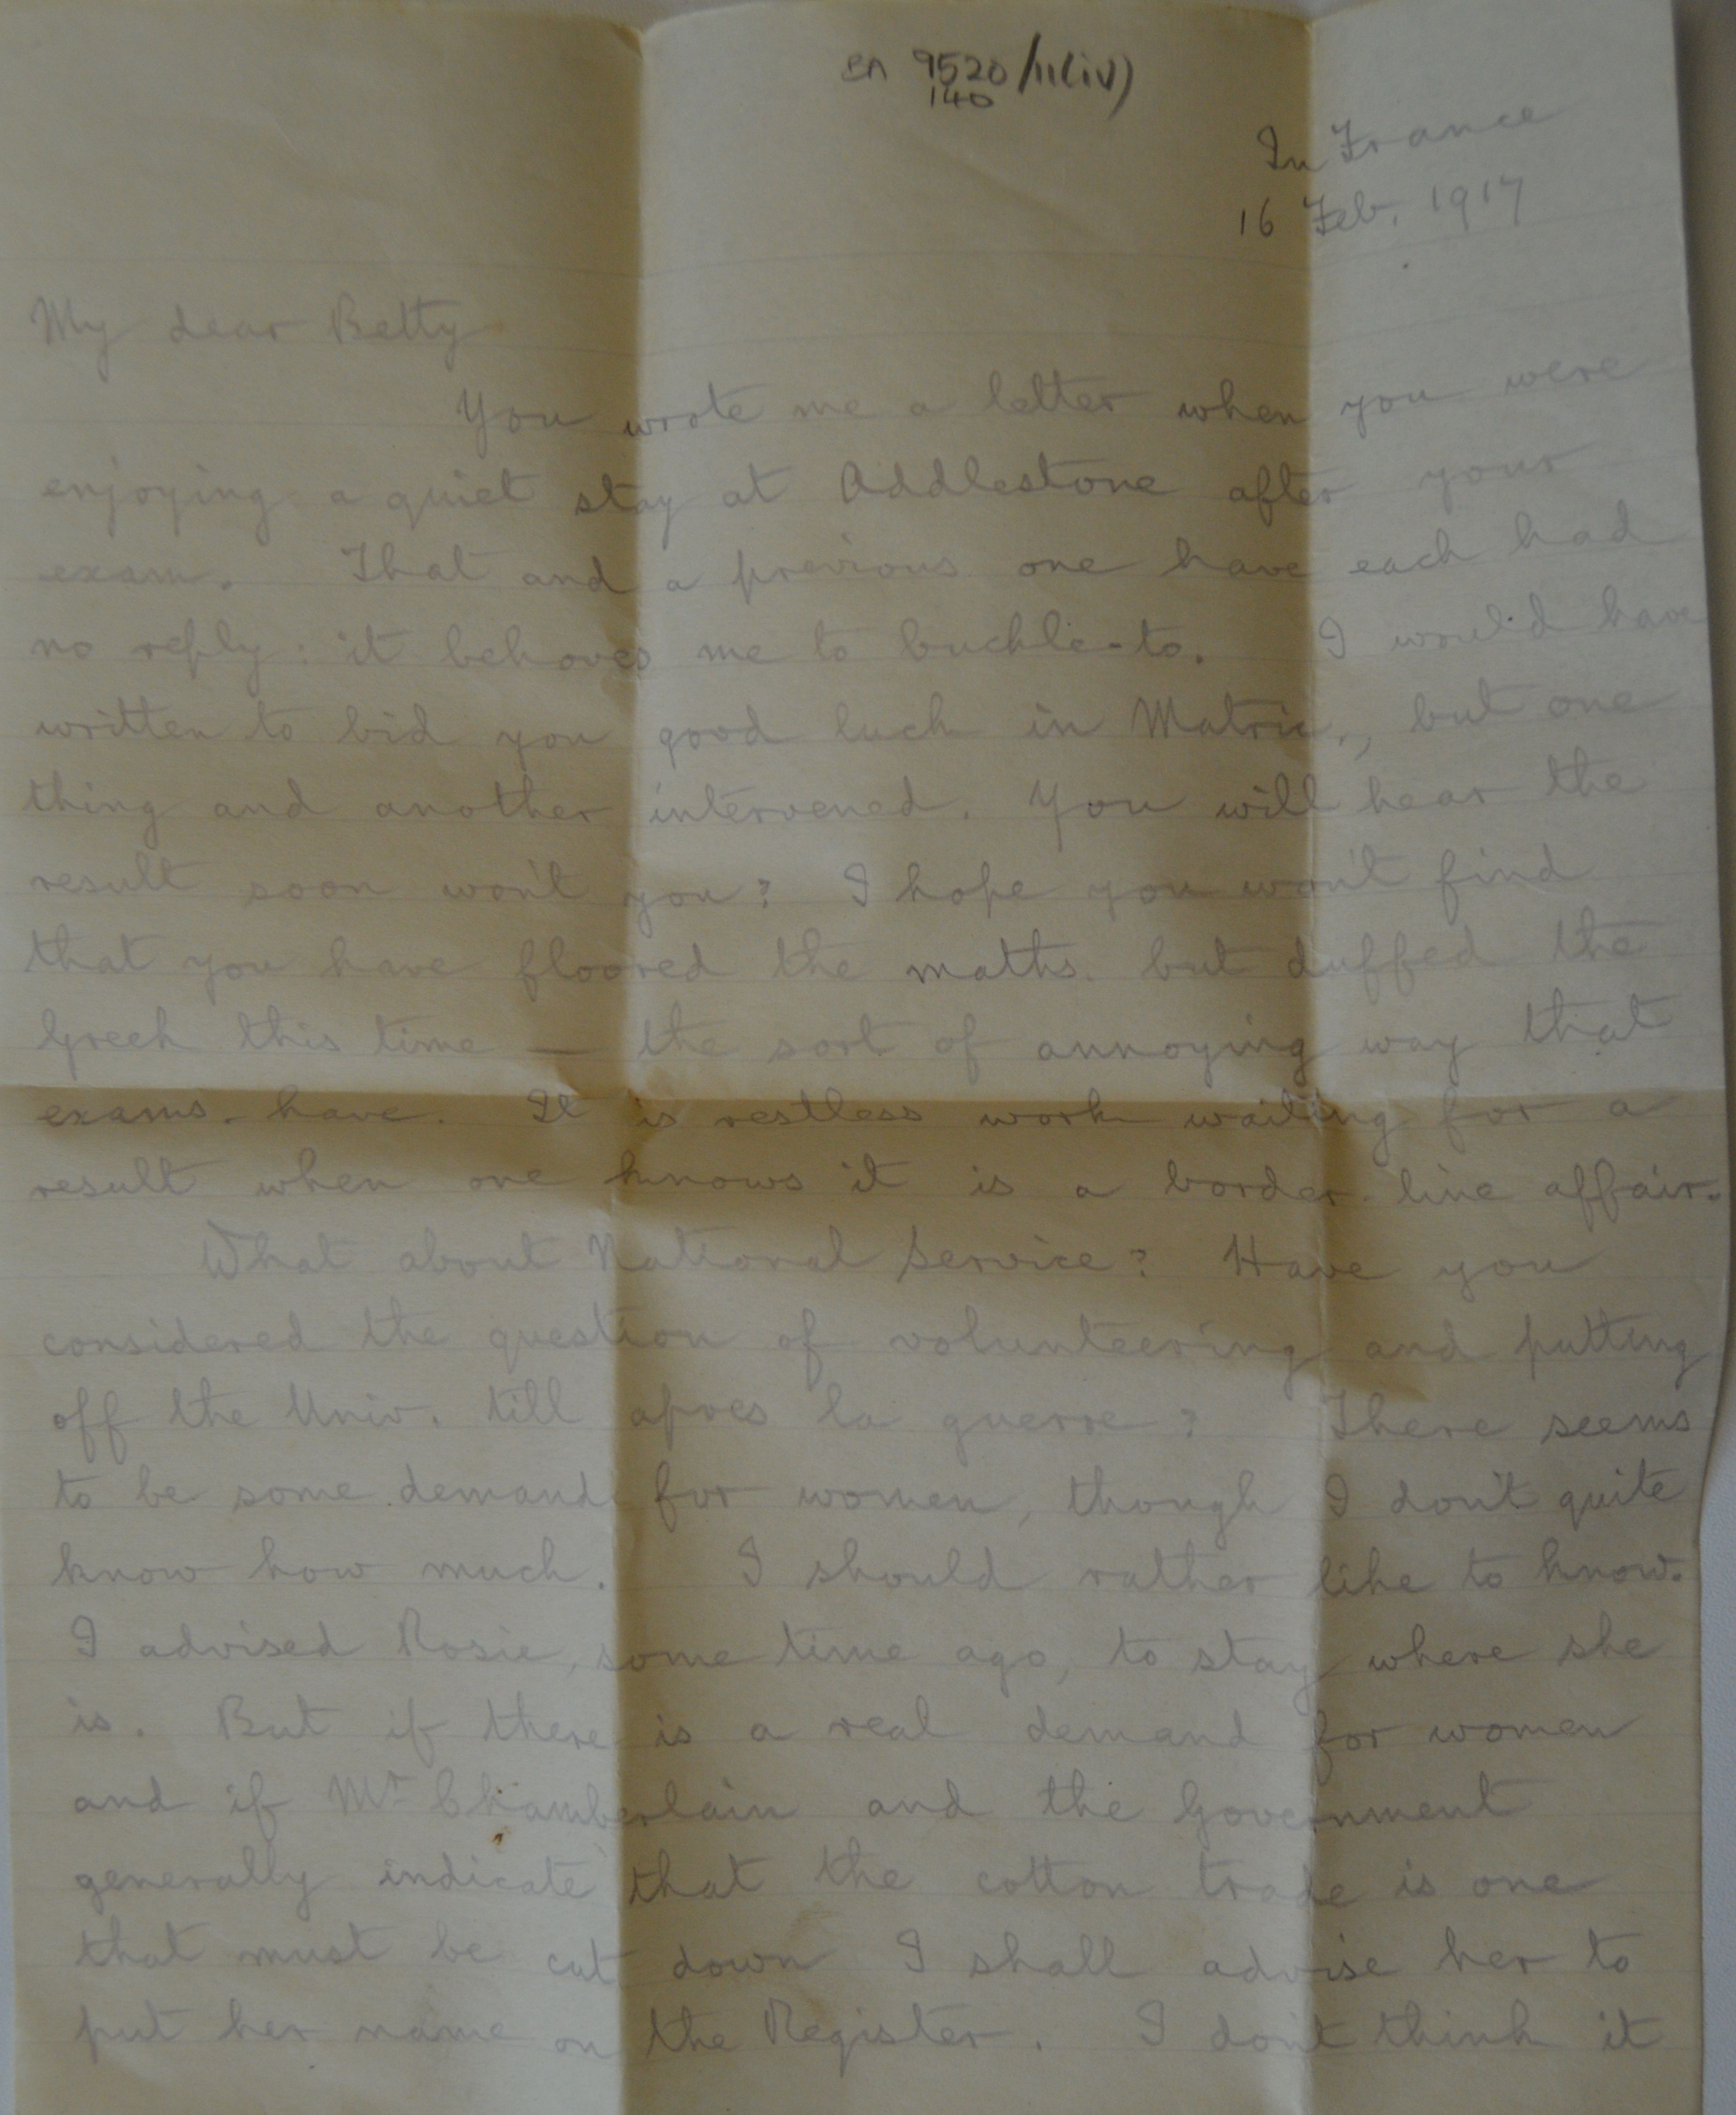 BA 9520/11(iv)
140
In France
16 Feb. 1917
My dear Betty
You wrote me a letter when you were
enjoying a quiet stay at Addlestone after your
exam. That and a previous one have each had
no reply: it behoves me to buckle-to. I would have
written to bid you good luck in Matric., but one
thing and another intervened. You will hear the
result soon won't you? I hope you won't find
that you have floored the maths. but duffed the
Greek this time — the sort of annoying way that
exams. have. It is restless work waiting for a
result when one knows it is a border-line affair.
What about National Service? Have you
considered the question of volunteering and putting
off the Univ. till apres la guerre? There seems
to be some demand for women, though I don't quite
know how much. I should rather like to know.
I advised Rosie, some time ago, to stay where she
is. But if there is a real demand for women
and if Mr Chamberlain and the Government
generally indicate that the cotton trade is one
that must be cut down I shall advise her to
put her name on the Register. I don't think it